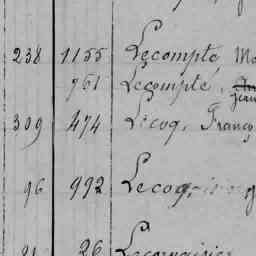 238 1155 Lecompte, Ma
761 Lecompte,
Jean
309 474 Lecoq, Franço
96 992 Lecoq
26